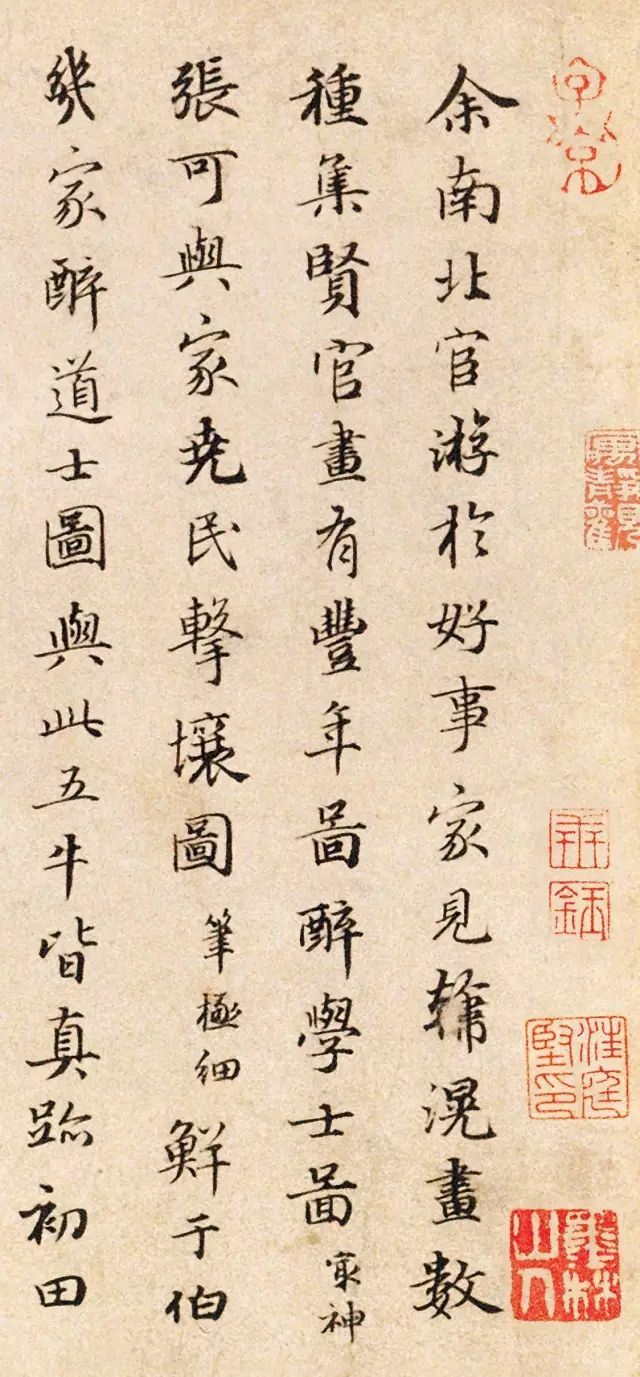 子京
余南北官游於好事家見韓滉畫數
種集賢官畫有豐年啚醉學士啚冣神
張可與家堯民擊壤圖筆極細鮮于伯
幾家醉道士圖與此五牛皆真跡初田
墨林山人